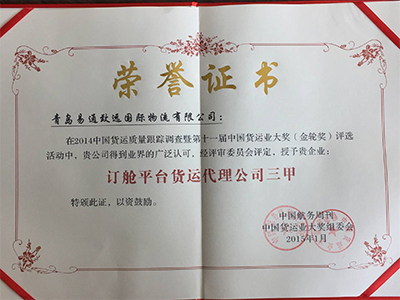 荣誉证书
青岛易通致远国际物流有限公司：
在2014中国货运质量跟踪调查暨第十一届中国货运业大奖（金轮奖）评选
活动中，贵公司得到业界的广泛认可，经评审委员会评定，授予贵企业：
订舱平台货运代理公司三甲
特颁此证，以资鼓励。
中国航务周刊
中国货运业大奖组委会
2015年1月